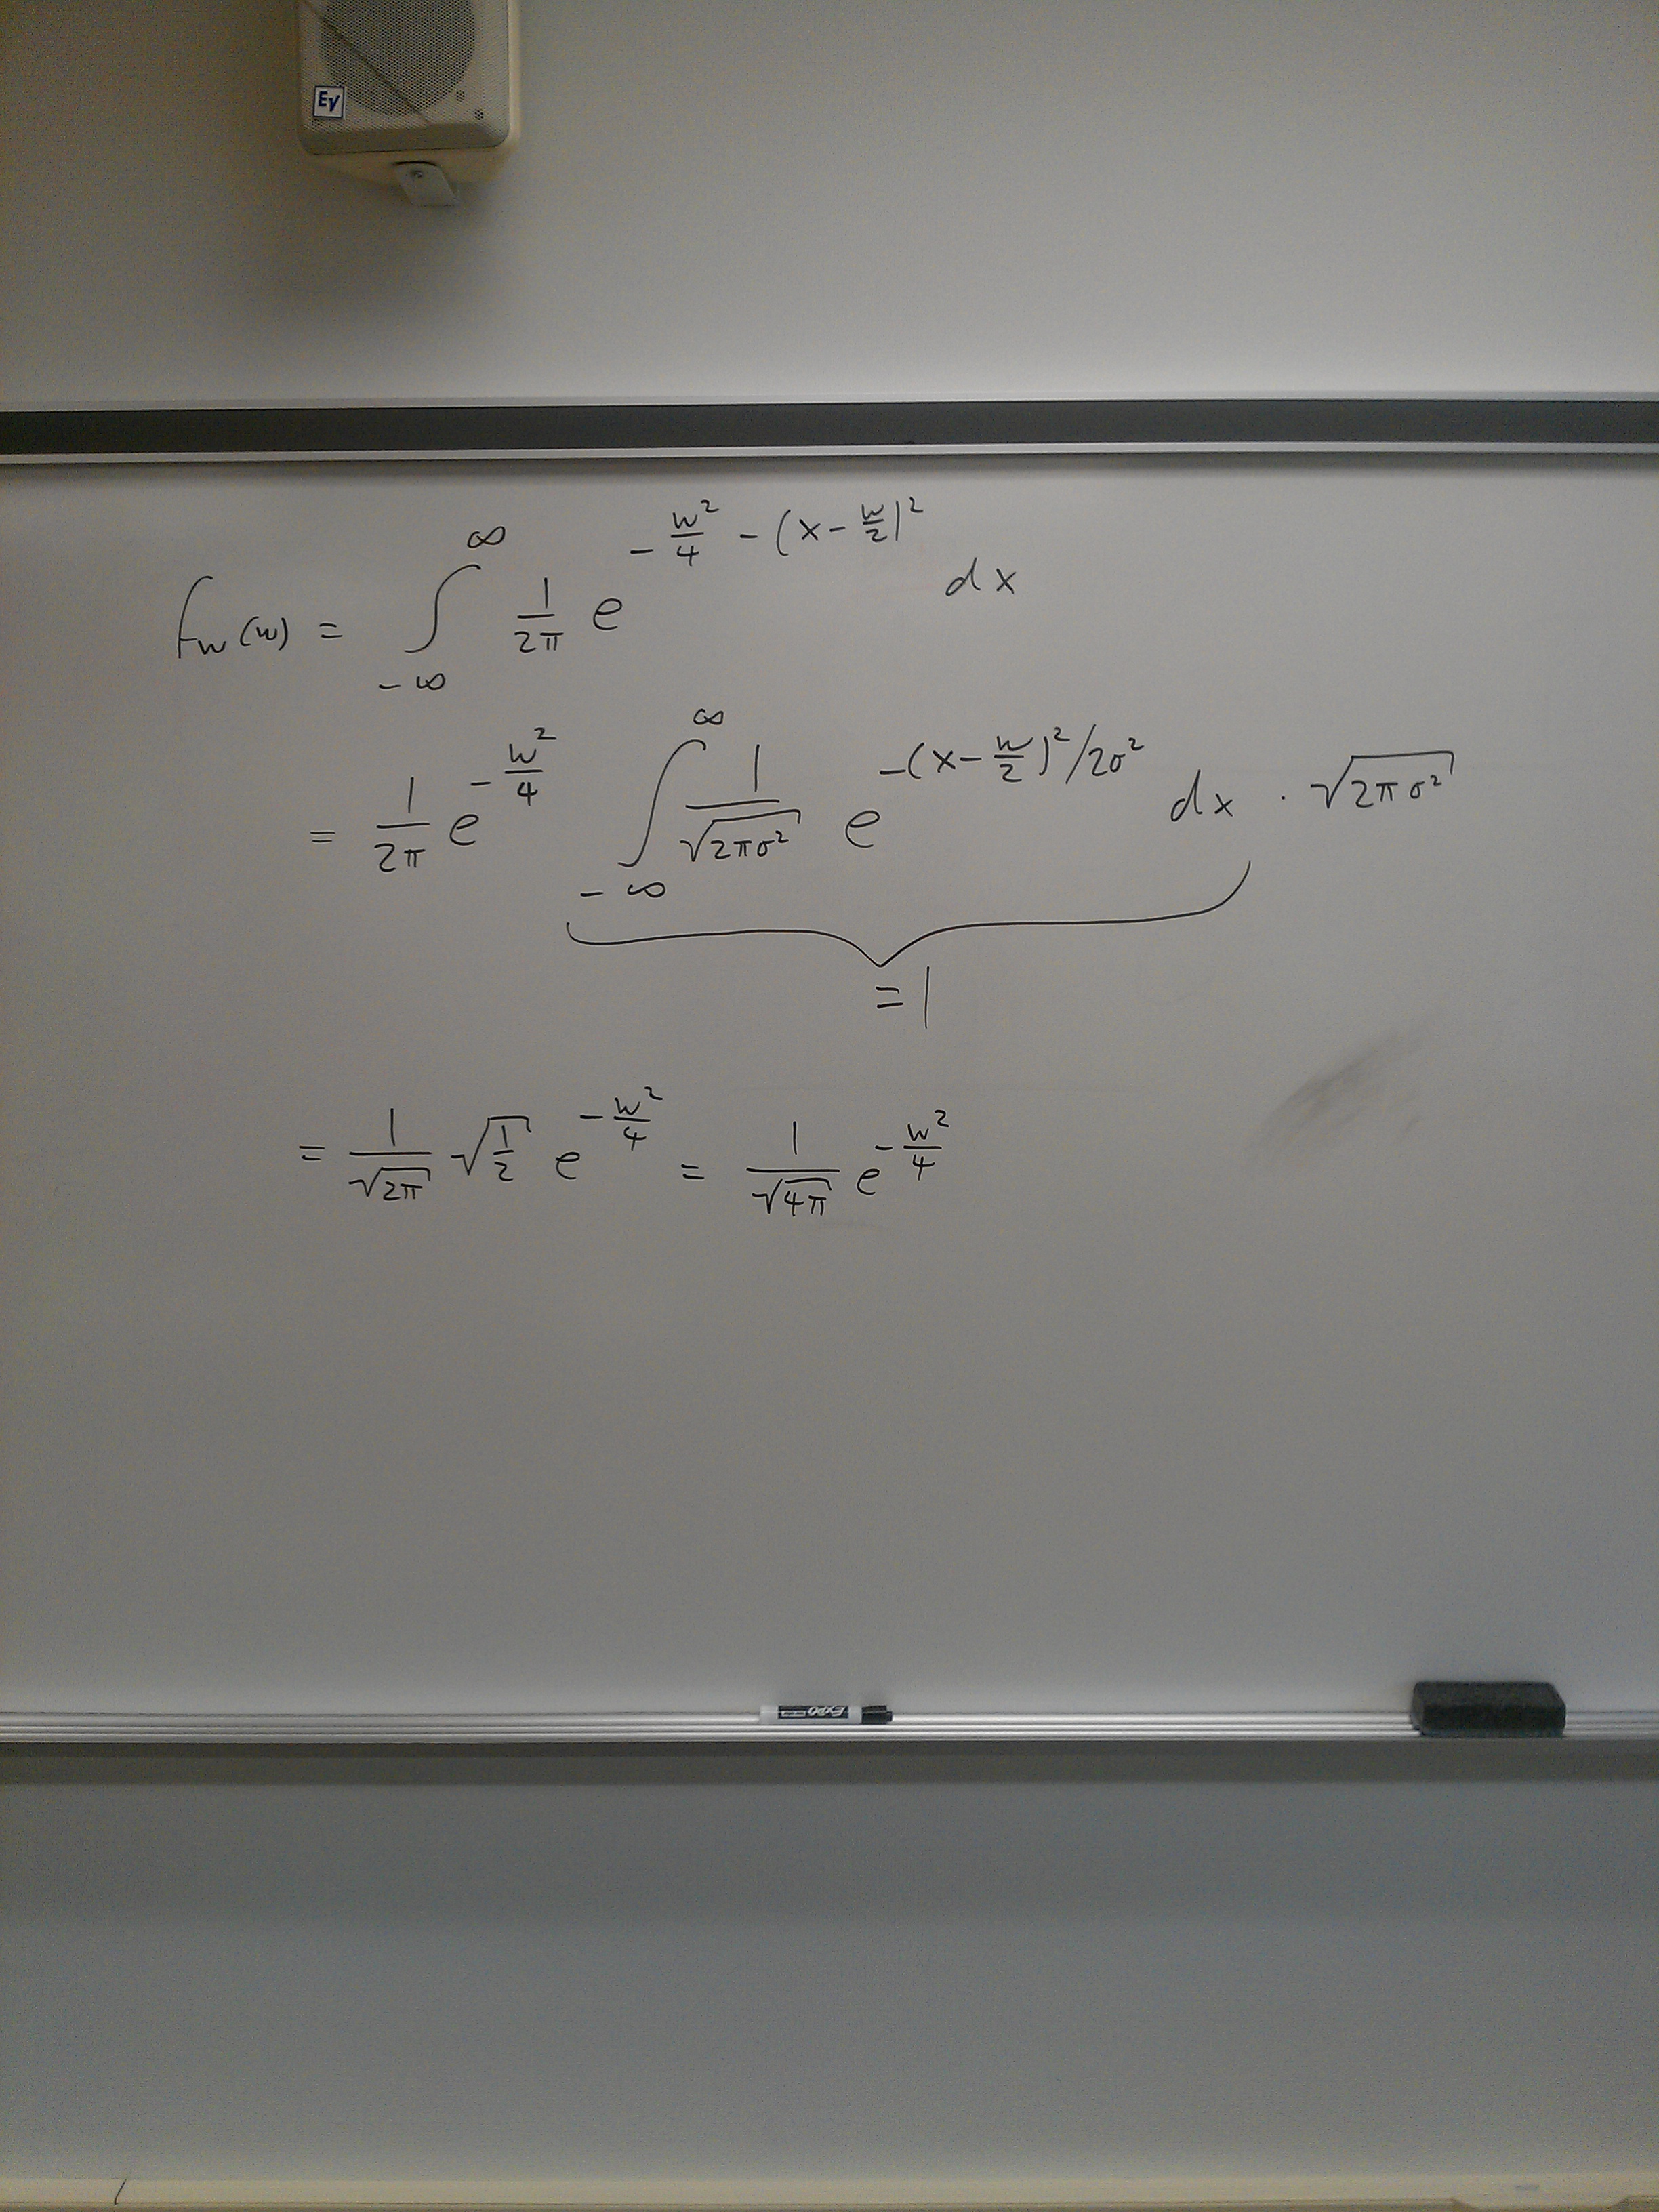 EV
f_W(w) = ∫_{-∞}^{∞} \frac{1}{2π} e^{-\frac{w^2}{4} - (x - \frac{w}{2})^2} dx
= \frac{1}{2π} e^{-\frac{w^2}{4}} ∫_{-∞}^{∞} \frac{1}{\sqrt{2πσ^2}} e^{-(x - \frac{w}{2})^2/2σ^2} dx · \sqrt{2πσ^2}
= 1
= \frac{1}{\sqrt{2π}} \sqrt{\frac{1}{2}} e^{-\frac{w^2}{4}} = \frac{1}{\sqrt{4π}} e^{-\frac{w^2}{4}}
EXPO